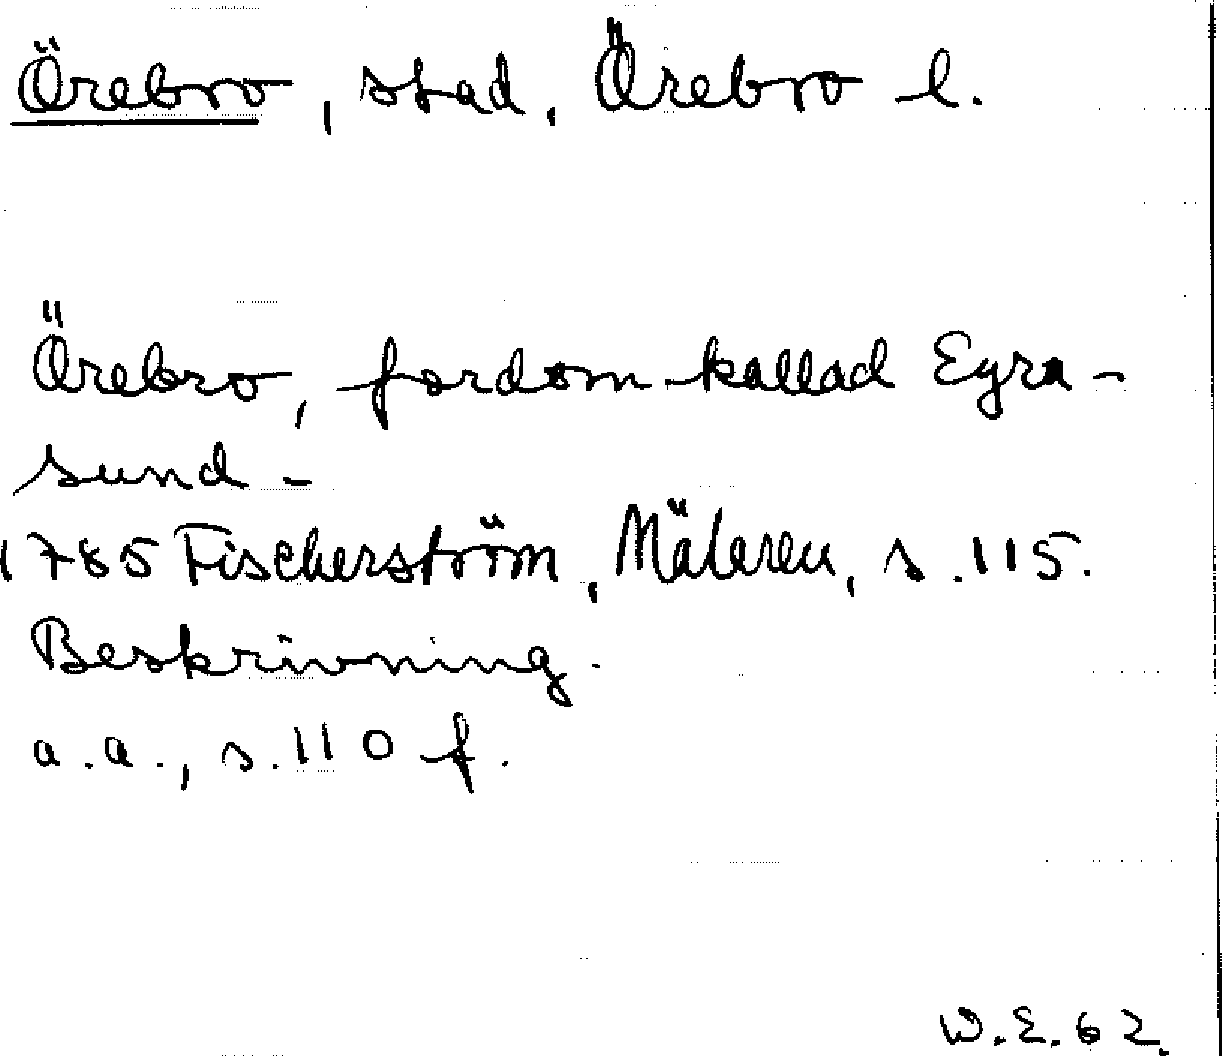 Örebro, stad, Örebro l.
Örebro, fordom kallad Eyra-
sund -
1785 Fischerström, Mäleren, s. 115.
Beskrivning.
a.a., s. 110 f.
W.E. 62.